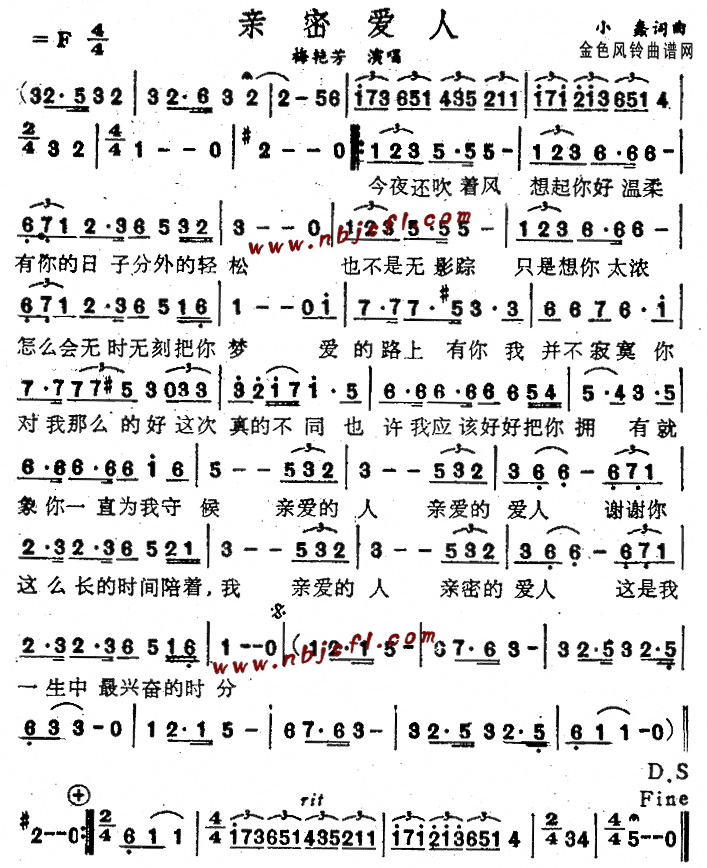 亲密爱人
= F 4/4
小 螽词曲
金色风铃曲谱网
梅艳芳 演唱
(32·532 | 32·6 32 | 2-56 | i73 651 435 211 | i7i 2i3 651 4 |
2/4 3 2 | 4/4 1--0 | #2--0 ‖: 123 5·55- | 123 6·66- |
今夜还吹着风 想起你好温柔
671 2·36 532 | 3--0 | 123 5·55- | 123 6·66- |
www.nbjzfl.com
有你的日子分外的轻松 也不是无影踪 只是想你太浓
671 2·36 516 | 1--0i | 7·77·#53·3 | 6676·i |
怎么会无时无刻把你梦 爱的路上有你我并不寂寞你
7·777#53033 | 32i7i·5 | 6·66·66654 | 5·43·5 |
对我那么的好这次真的不同也许我应该好好把你拥有就
6·66·66i6 | 5--532 | 3--532 | 366-671 |
象你一直为我守候 亲爱的人 亲爱的爱人 谢谢你
2·32·36521 | 3--532 | 3--532 | 366-671 |
这么长的时间陪着,我 亲爱的人 亲密的爱人 这是我
2·32·36516 | 1--0 | (12·15- | 67·63- | 32·532·5 |
www.nbjzfl.com
一生中最兴奋的时分
633-0 | 12·15- | 67·63- | 32·532·5 | 611-0) ‖
D.S
rit Fine
#2--0 :‖ 2/4 611 | 4/4 i73651435211 | i7i2i36514 | 2/4 34 | 4/4 5--0 ‖